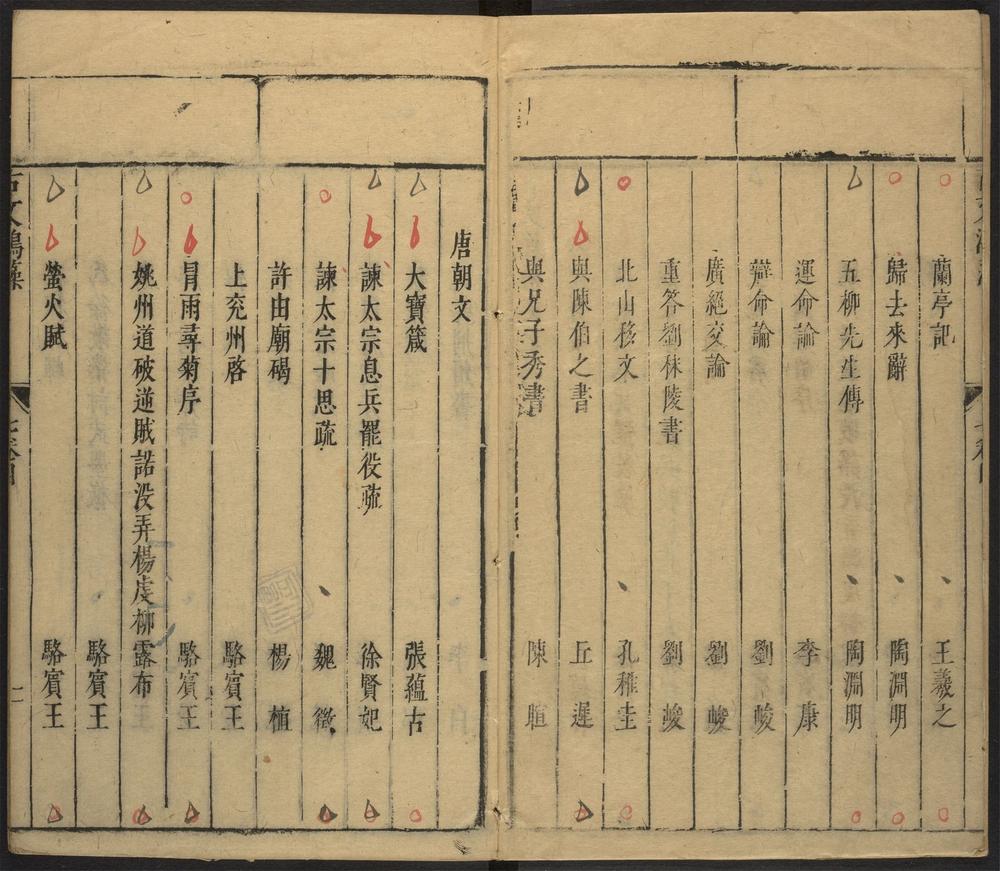 蘭亭記 王羲之
歸去來辭 陶淵明
五柳先生傳 陶淵明
運命論 李康
辯命論 劉峻
廣絕交論 劉峻
重答劉秣陵書 劉峻
北山移文 孔稚圭
與陳伯之書 丘遲
與兄子秀書 陳暄
唐朝文
大寶箴 張蘊古
諫太宗息兵罷役疏 徐賢妃
諫太宗十思疏 魏徵
許由廟碣 楊植
上兗州啓 駱賓王
冐雨尋菊序 駱賓王
姚州道破逆賊諾没弄楊虔柳露布
駱賓王
螢火賦 駱賓王
古文鴻藻